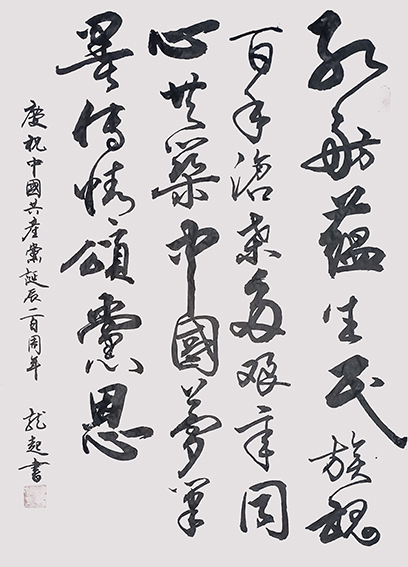 紅舫蘊生民族魂
百年滄桑多艱辛同
心共築中國夢筆
墨傳情頌黨恩
慶祝中國共產黨誕辰一百周年 龍起書